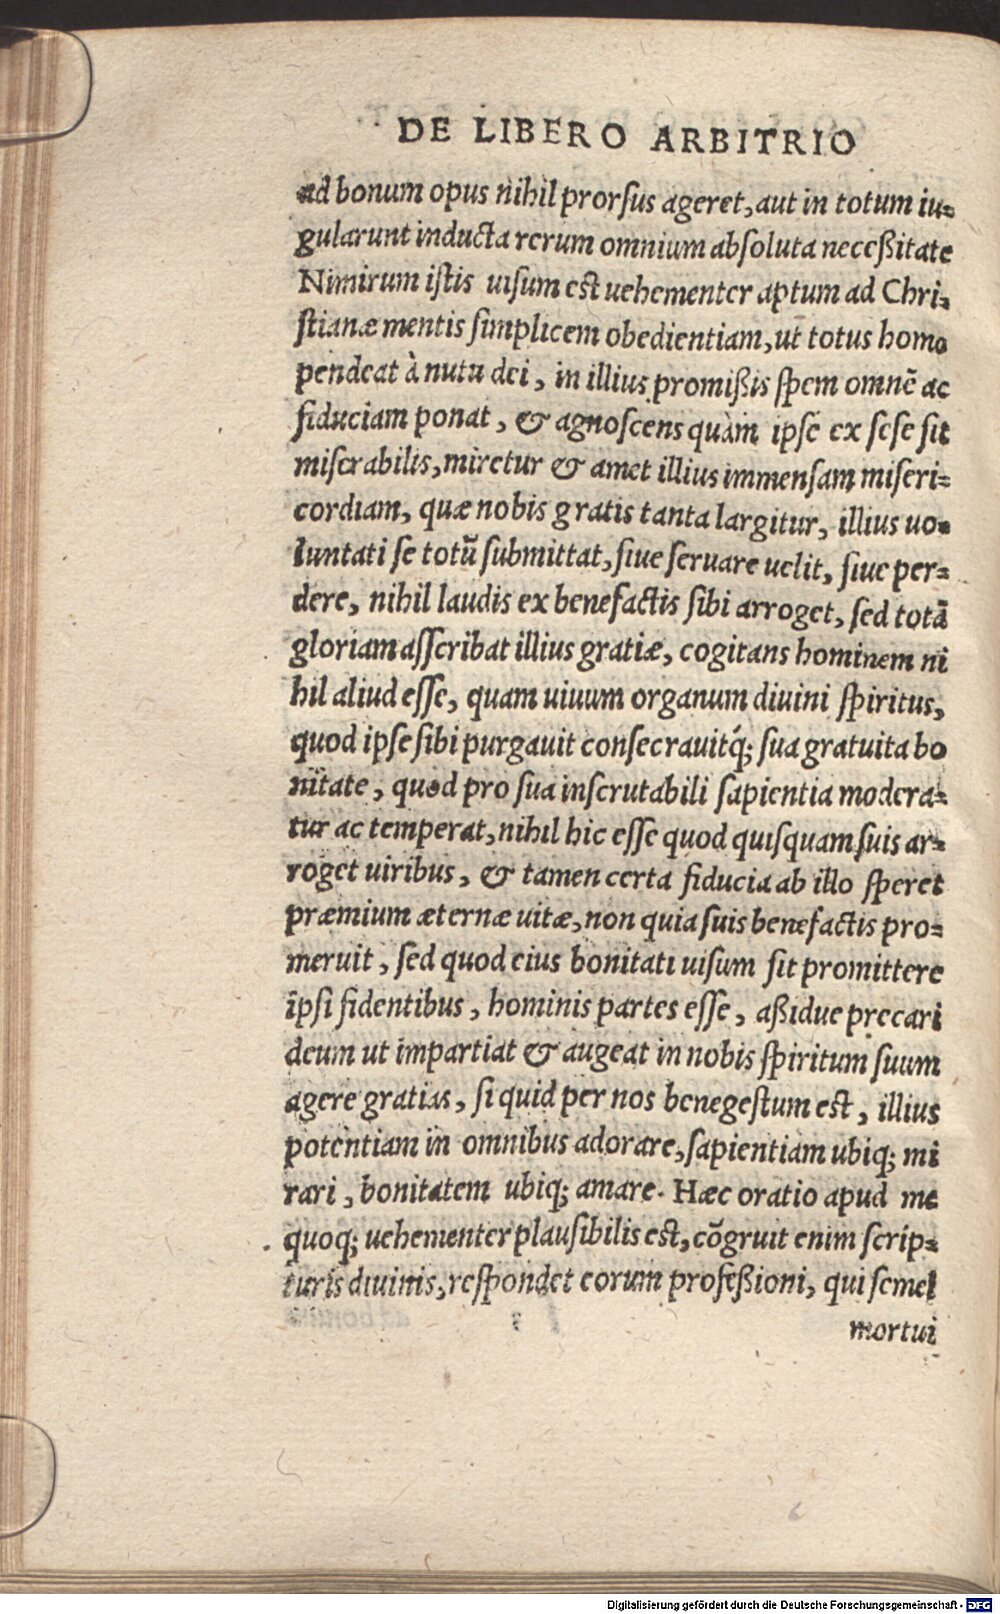 DE LIBERO ARBITRIO
ad bonum opus nihil prorsus ageret, aut in totum iu-
gularunt inducta rerum omnium absoluta necessitate
Nimirum istis uisum est uehementer aptum ad Chri-
stianæ mentis simplicem obedientiam, ut totus homo
pendeat à nutu dei, in illius promissis spem omnē ac
fiduciam ponat, & agnoscens quàm ipse ex sese sit
miserabilis, miretur & amet illius immensam miseri-
cordiam, quæ nobis gratis tanta largitur, illius uo-
luntati se totū submittat, siue seruare uelit, siue per-
dere, nihil laudis ex benefactis sibi arroget, sed totā
gloriam asscribat illius gratiæ, cogitans hominem ni
hil aliud esse, quam uiuum organum diuini spiritus,
quod ipse sibi purgauit consecrauitq́; sua gratuita bo
nitate, quod pro sua inscrutabili sapientia modera-
tur ac temperat, nihil hic esse quod quisquam suis ar-
roget uiribus, & tamen certa fiducia ab illo speret
præmium æternæ uitæ, non quia suis benefactis pro-
meruit, sed quod eius bonitati uisum sit promittere
ipsi fidentibus, hominis partes esse, assidue precari
deum ut impartiat & augeat in nobis spiritum suum
agere gratias, si quid per nos benegestum est, illius
potentiam in omnibus adorare, sapientiam ubiq; mi
rari, bonitatem ubiq; amare. Hæc oratio apud me
quoq; uehementer plausibilis est, cōgruit enim scrip-
turis diuinis, respondet eorum professioni, qui semel
mortui
Digitalisierung gefördert durch die Deutsche Forschungsgemeinschaft - DFG